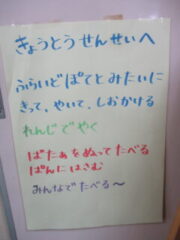 きょうとうせんせいへ
ふらいどぽてとみたいに
きって、やいて、しおかける
れんじでやく
ばたあをぬってたべる
ぱんにはさむ
みんなでたべる～